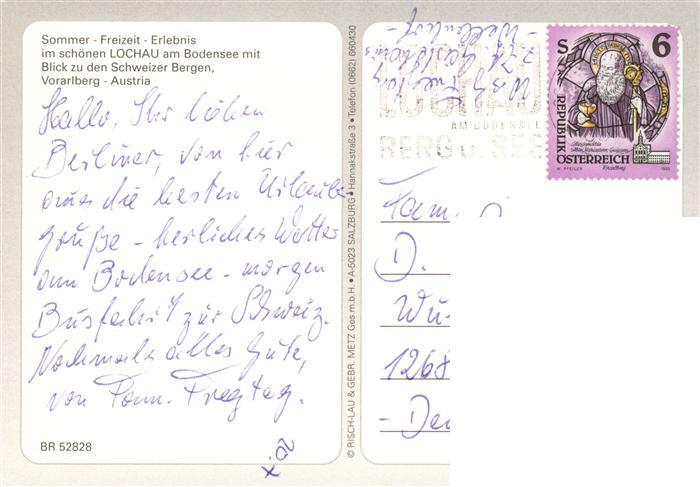 Sommer - Freizeit - Erlebnis
im schönen LOCHAU am Bodensee mit
Blick zu den Schweizer Bergen,
Vorarlberg - Austria
Hallo, Ihr lieben
Berliner, von hier
aus die besten Urlaubs
grüße - herliches Wetter
am Bodensee - morgen
Busfahrt zur Schweiz.
Nochmals alles Gute,
von Fam. Freytag.
BR 52828
© RISCH-LAU & GEBR. METZ Ges.m.b.H. • A-5023 SALZBURG • Hannakstraße 3 • Telefon (0662) 660430
LOCHAU
AM BODENSEE
BERG U. SEE
S 6
REPUBLIK
ÖSTERREICH
W. PFEILER 1993
Fam.
D.
Wu-
1268
- Deu